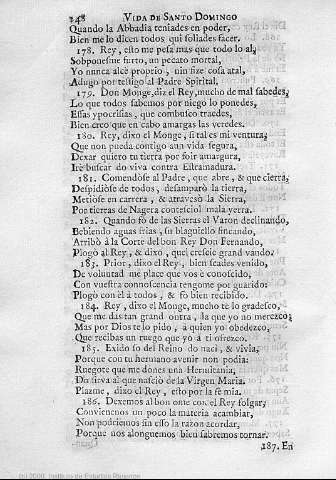 248 VIDA DE SANTO DOMINGO
Quando la Abbadia teniades en poder,
Bien me lo dicen todos qui soliades facer.
178. Rey, esto me pesa mas que todo lo al,
Sobponesme furto, un pecato mortal,
Yo nunca alcè proprio, nin fize cosa atal,
Adugo por testigo al Padre Spirital.
179. Don Monge, diz el Rey, mucho de mal sabedes,
Lo que todos sabemos por niego lo ponedes,
Essas ypocrisias, que combusco traedes,
Bien creo que en cabo amargas las veredes.
180. Rey, dixo el Monge, si tal es mi ventura,
Que non pueda contigo aun vida segura,
Dexar quiero tu tierra por foir amargura,
Irè buscar do viva contra Estramadura.
181. Comendose al Padre, que abre, & que cierra,
Despidiòse de todos, desamparò la tierra,
Metiòse en carrera, & atravesò la Sierra,
Por tierras de Nagera contesciol mala yerra.
182. Quando fo de las Sierras el Varon declinando,
Bebiendo aguas frias, su blaguiello fincando,
Arribò à la Corte del bon Rey Don Fernando,
Plogò al Rey, & dixo, quel crescie grand vando.
183. Prior, dixo el Rey, bien seades venido,
De voluntad me place que vos è conoscido,
Con vuestra connoscencia tengome por guarido:
Plogò con èl à todos, & fo bien recibido.
184. Rey, dixo el Monge, mucho te lo gradesco,
Que me das tan grand ontra, la que yo no merezco;
Mas por Dios te lo pido, à quien yo obedezco,
Que recibas un ruego que yo à tì ofrezco.
185. Exido so del Reino do nacì, & vivìa,
Porque con tu hermano avenir non podìa:
Ruegote que me dones una Hermitanìa,
Do sirva al que nasciò de la Virgen Marìa.
Plazme, dixo el Rey, esto por la fe mia.
186. Dexemos al bon ome con el Rey folgar,
Conviennenos un poco la materia acambiar,
Non podriemos sin esso la razon acordar,
Porque nos alongnemos bien sabremos tornar.
187. En
(c) 2006, Instituto de Estudios Riojanos